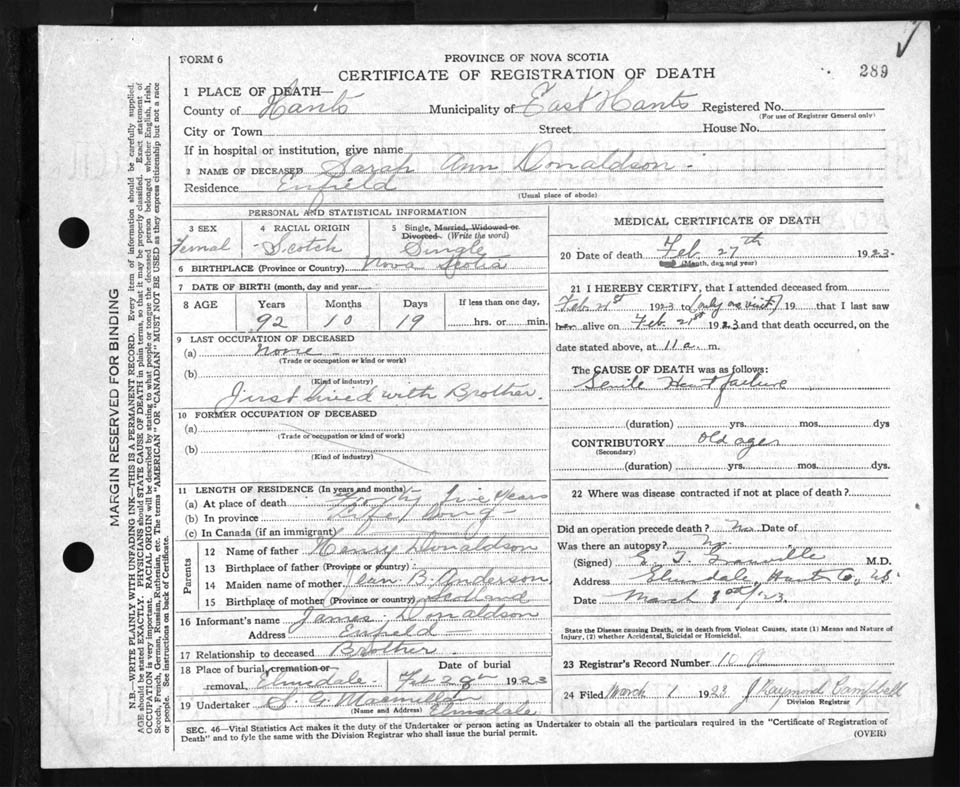 FORM 6
PROVINCE OF NOVA SCOTIA
CERTIFICATE OF REGISTRATION OF DEATH
289
1 PLACE OF DEATH—
County of Hants Municipality of East Hants Registered No.
(For use of Registrar General only)
City or Town Street House No.
If in hospital or institution, give name
2 NAME OF DECEASED Sarah Ann Donaldson
Residence Enfield
(Usual place of abode)
PERSONAL AND STATISTICAL INFORMATION
3 SEX
Femal
4 RACIAL ORIGIN
Scotch
5 Single, Married, Widowed or Divorced (Write the word)
Single
6 BIRTHPLACE (Province or Country) Nova Scotia
7 DATE OF BIRTH (month, day and year)
8 AGE Years Months Days If less than one day,
92 10 19 hrs. or min.
9 LAST OCCUPATION OF DECEASED
(a) none
(Trade or occupation or kind of work)
(b)
(Kind of industry)
Just lived with Brother.
10 FORMER OCCUPATION OF DECEASED
(a)
(Trade or occupation or kind of work)
(b)
(Kind of industry)
11 LENGTH OF RESIDENCE (In years and months)
(a) At place of death Forty five years
(b) In province Life long
(c) In Canada (if an immigrant)
Parents
12 Name of father Henry Donaldson
13 Birthplace of father (Province or country)
14 Maiden name of mother Jean B. Anderson
15 Birthplace of mother (Province or country) Scotland
16 Informant's name James Donaldson
Address Enfield
17 Relationship to deceased Brother
18 Place of burial, cremation or removal, Elmsdale Date of burial Feb 28th 1923
19 Undertaker S. G. Macmillan
(Name and Address) Elmsdale
MEDICAL CERTIFICATE OF DEATH
20 Date of death Feb. 27th 1923.
(Month, day and year)
21 I HEREBY CERTIFY, that I attended deceased from
Feb 21st 1923 to (only as visit) 19 that I last saw
her alive on Feb. 21st 1923 and that death occurred, on the
date stated above, at 11 a. m.
The CAUSE OF DEATH was as follows:
Senile Heart failure
(duration) yrs. mos. dys
CONTRIBUTORY old age
(Secondary)
(duration) yrs. mos. dys.
22 Where was disease contracted if not at place of death?
Did an operation precede death? No Date of
Was there an autopsy? No.
(Signed) M.D.
Address Elmsdale, Hants Co., NS.
Date March /23.
State the Disease causing Death, or in death from Violent Causes, state (1) Means and Nature of
Injury, (2) whether Accidental, Suicidal or Homicidal.
23 Registrar's Record Number 10
24 Filed March 1 1923 J Raymond Campbell
Division Registrar
SEC. 46—Vital Statistics Act makes it the duty of the Undertaker or person acting as Undertaker to obtain all the particulars required in the "Certificate of Registration of
Death" and to fyle the same with the Division Registrar who shall issue the burial permit.
(OVER)
MARGIN RESERVED FOR BINDING
N.B.—WRITE PLAINLY WITH UNFADING INK—THIS IS A PERMANENT RECORD. Every item of information should be carefully supplied.
AGE should be stated EXACTLY. PHYSICIANS should STATE CAUSE OF DEATH in plain terms, so that it may be properly classified. Exact statement of
OCCUPATION is very important. RACIAL ORIGIN will be described by stating to what people or tongue the deceased person belonged whether English, Irish,
Scotch, French, German, Russian, Ruthenian, etc. The terms "AMERICAN" or "CANADIAN" MUST NOT BE USED as they express citizenship but not a race
or people. See instructions on back of Certificate.